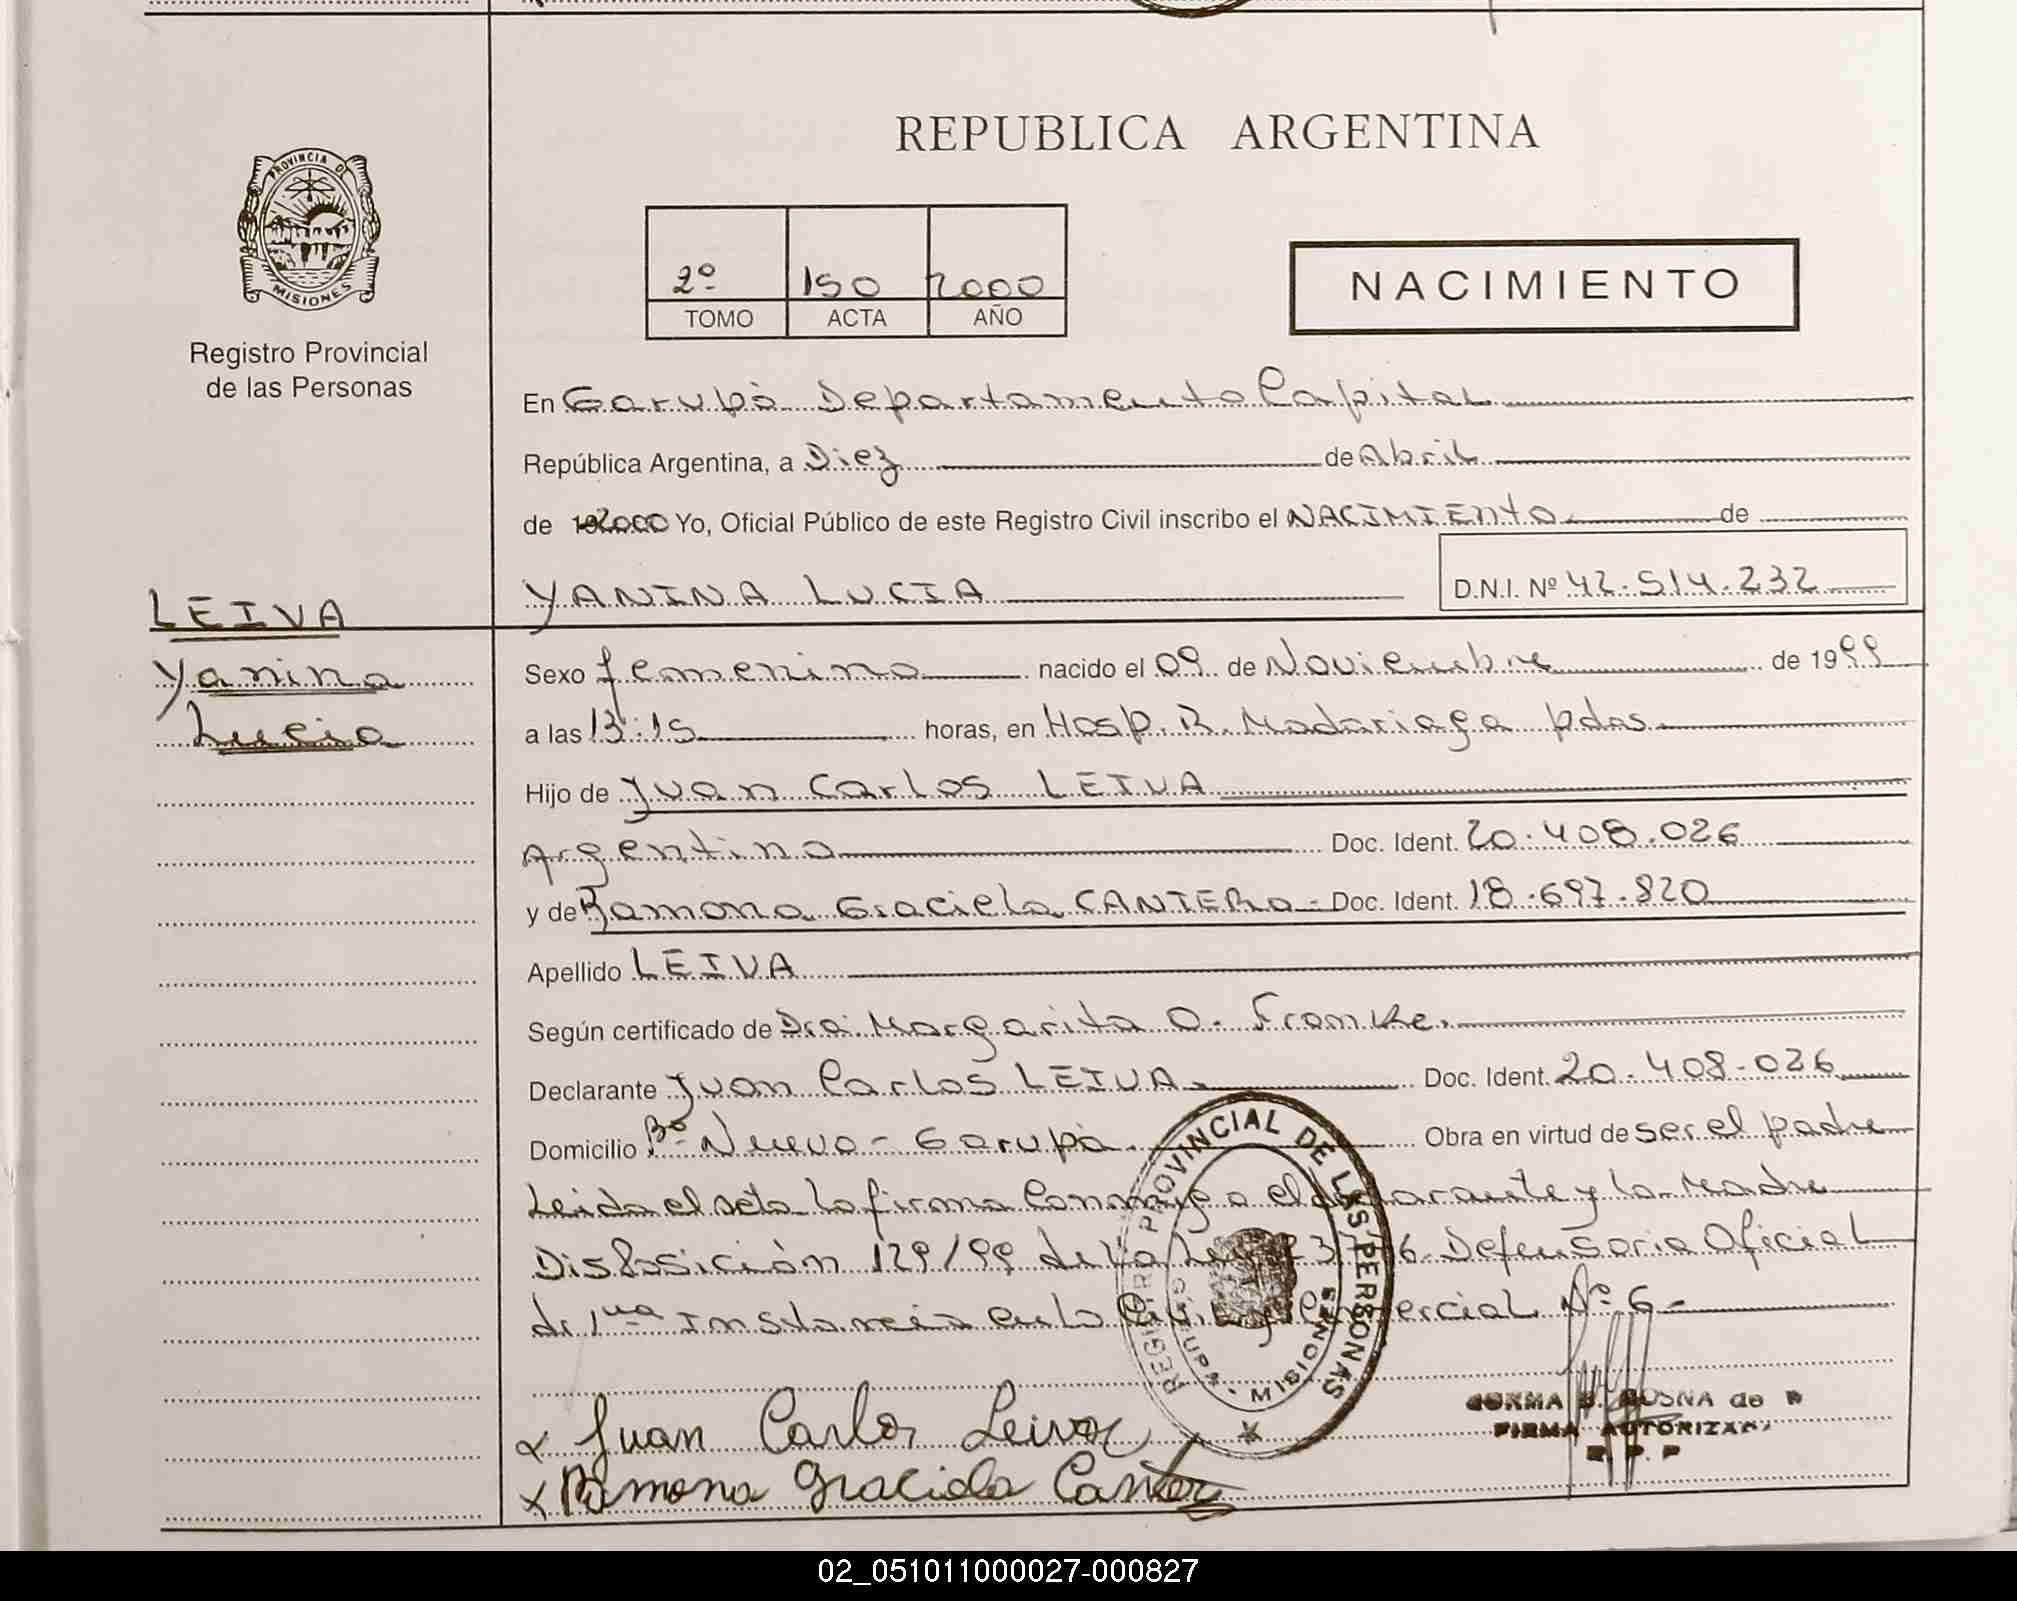 REPUBLICA ARGENTINA
PROVINCIA DE
MISIONES
Registro Provincial
de las Personas
2º 150 2000
TOMO ACTA AÑO
NACIMIENTO
En Garupá Departamento Capital
República Argentina, a Diez de Abril
de 2000 Yo, Oficial Público de este Registro Civil inscribo el NACIMIENTO de
LEIVA
Yanina
Lucia
YANINA LUCIA
D.N.I. Nº 42.514.232
Sexo femenino nacido el 09 de Noviembre de 1999
a las 13:15 horas, en Hosp. R. Madariaga pdas.
Hijo de Juan Carlos LEIVA
Argentino Doc. Ident. 20.408.026
y de Ramona Graciela CANTERO - Doc. Ident. 18.697.820
Apellido LEIVA
Según certificado de Dra. Margarita O. Franke.
Declarante Juan Carlos LEIVA. Doc. Ident. 20.408.026
Domicilio Bº Nuevo - Garupá. Obra en virtud de ser el padre
Leida el acta la firma Conmigo el declarante y la Madre
Disposición 129/99 de la Ley Defensoria Oficial
de 1ra Instancia en lo Civil y Comercial Nº 6 -
REGISTRO PROVINCIAL DE LAS PERSONAS
GARUPA - MISIONES
Juan Carlos Leiva
Ramona Graciela Cantero
NORMA B. de
FIRMA AUTORIZADA
R. P. P
02_051011000027-000827